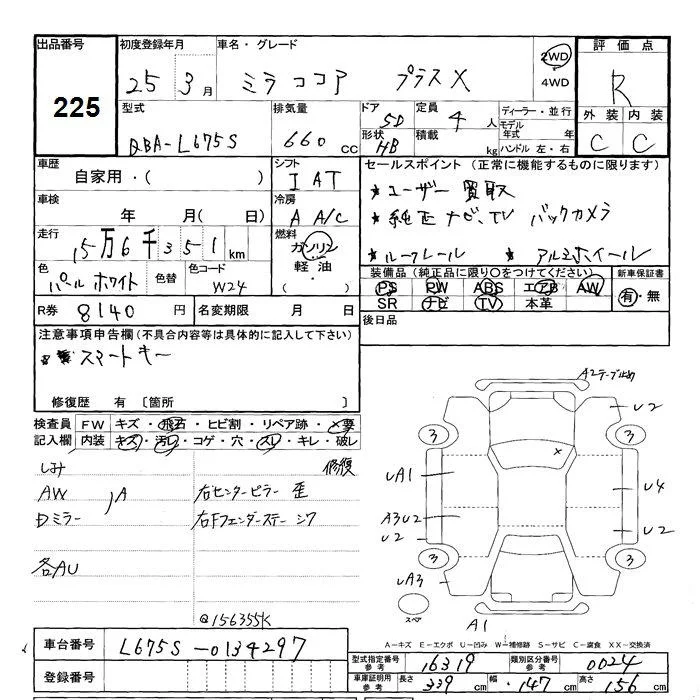 出品番号 225
初度登録年月 25 3月
車名・グレード ミラ ココア プラスX
2WD
4WD
評価点 R
外装 内装
C C
型式 DBA-L675S
排気量 660 cc
ドア 5D
形状 HB
定員 4人
積載 kg
ディーラー・並行
モデル年式 年
ハンドル 左・右
車歴 自家用・( )
シフト I AT
セールスポイント (正常に機能するものに限ります)
★ユーザー買取
★純正ナビ、TV バックカメラ
★ルーフレール ★アルミホイール
車検 年 月( 日)
冷房 A A/C
走行 15万6千351km
燃料 ガソリン
軽油・
( )
色 パールホワイト 色替
色コード W24
装備品(純正品に限り○をつけてください)
PS PW ABS エアB AW
SR ナビ TV 本革
新車保証書
有・無
R券 8140円
名変期限 月 日
後日品
注意事項申告欄(不具合内容等は具体的に記入して下さい)
スマートキー
修復歴 有 〔箇所
検査員記入欄
FW キズ・飛石・ヒビ割・リペア跡・×要
内装 キズ・汚レ・コゲ・穴・スレ・キレ・破レ
しみ 修復
AW A 右センターピラー 歪
Dミラー 右Fフェンダーステー シワ
各AU
@156355K
A2テープ止め
U2
3 3
UA1 U4
A3U2 U2
U2
3 3
UA3
スペア
A1
A-キズ E-エクボ U-凹み W-補修跡 S-サビ C-腐食 XX-交換済
車台番号 L675S-0134297
登録番号
型式指定番号 参考 16319
類別区分番号 参考 0024
車庫証明用 参考 長さ 339cm 幅 147cm 高さ 156cm